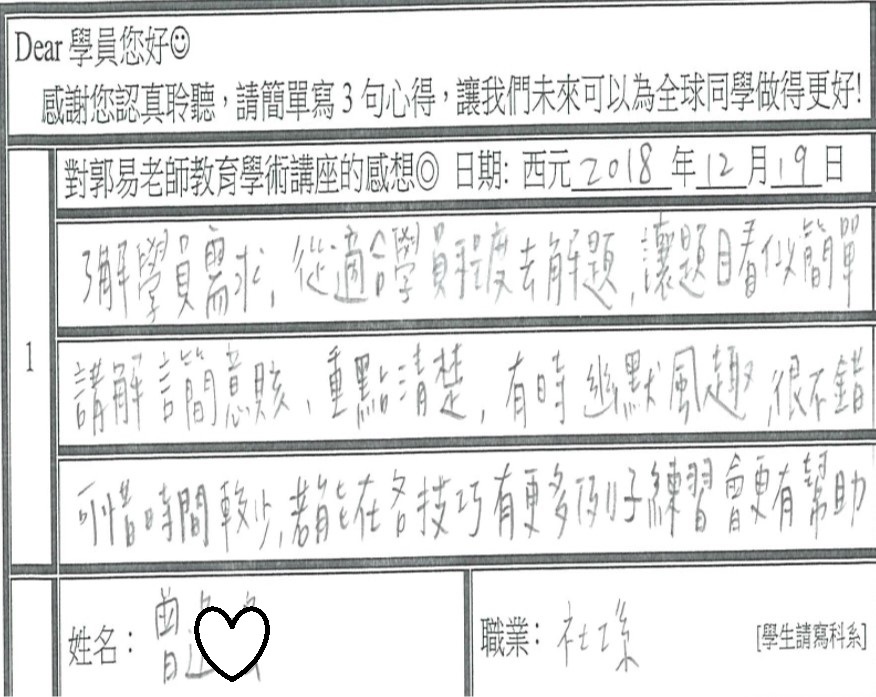 Dear 學員您好☺
感謝您認真聆聽，請簡單寫3句心得，讓我們未來可以為全球同學做得更好!
1
對郭易老師教育學術講座的感想◎ 日期: 西元2018年12月19日
了解學員需求，從適合學員程度去解題，讓題目看似簡單
講解言簡意賅，重點清楚，有時幽默風趣，很不錯
可惜時間較少，若能在各技巧有更多例子練習會更有幫助
姓名： 曾
職業： 社工系 [學生請寫科系]